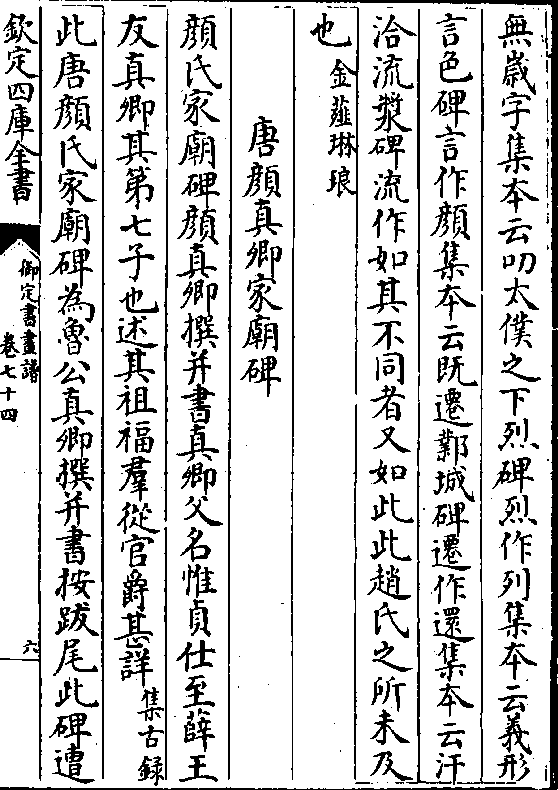 無嵗字集本云叨太僕之下烈碑烈作列集本云義形
言色碑言作顔集本云既遷鄴城碑遷作還集本云汗
洽流漿碑流作如其不同者又如此此趙氏之所未及
也金薤琳琅
唐顔真卿家廟碑
顔氏家廟碑顔真卿撰并書真卿父名惟貞仕至薛王
友真卿其第七子也述其祖禰羣從官爵甚詳集古錄
此唐顔氏家廟碑為魯公真卿撰并書按跋尾此碑遭
欽定四庫全書
御定書畫譜
卷七十四
六